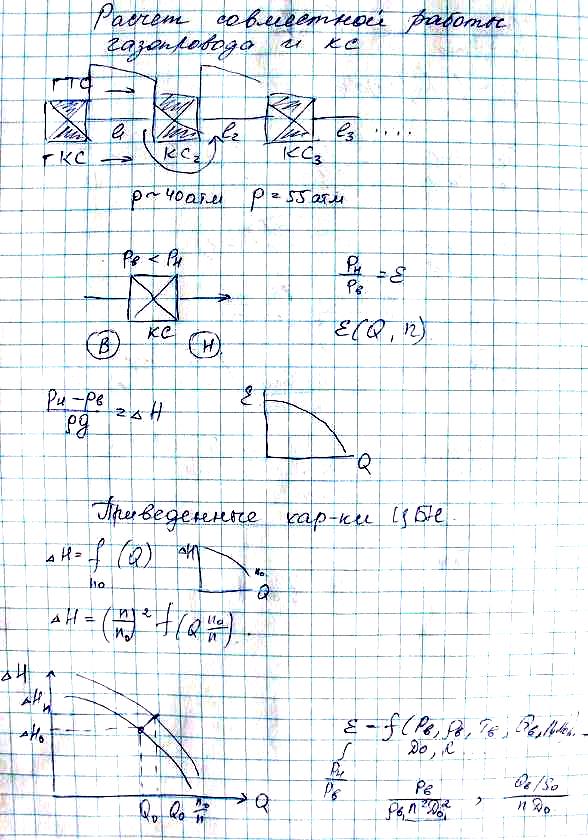 Расчет совместной работы
газопровода и КС
ГТС
ГКС l₁ КС₂ l₂ КС₃ l₃ ....
p~40атм p=55атм
Pв < Pн
КС
В Н
Pн/Pв = ε
ε(Q, n)
(Pн – Pв)/ρg = ΔH
ε
Q
Приведенные хар-ки ЦБН.
ΔH = f (Q)
n₀
ΔH n₀
Q
ΔH = (n/n₀)² f(Q n₀/n).
ΔH
ΔHn
ΔH₀
Q₀ Q₀ n₀/n Q
ε = f(Pв, ρв, Tв,
D₀,
Pн/Pв
Pв/ρв n² D₀² , Qв/S₀/n D₀